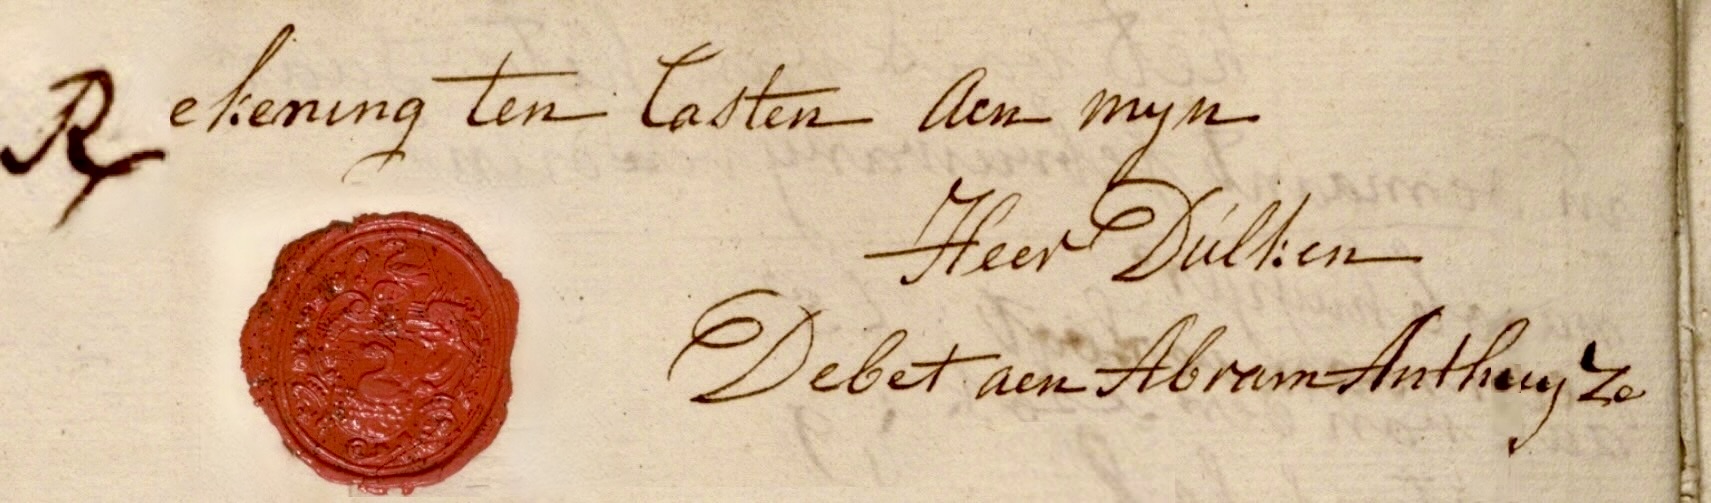 Rekening ten Lasten Aen myn
Heer Dúlken
Debet aen Abram Anthuyze